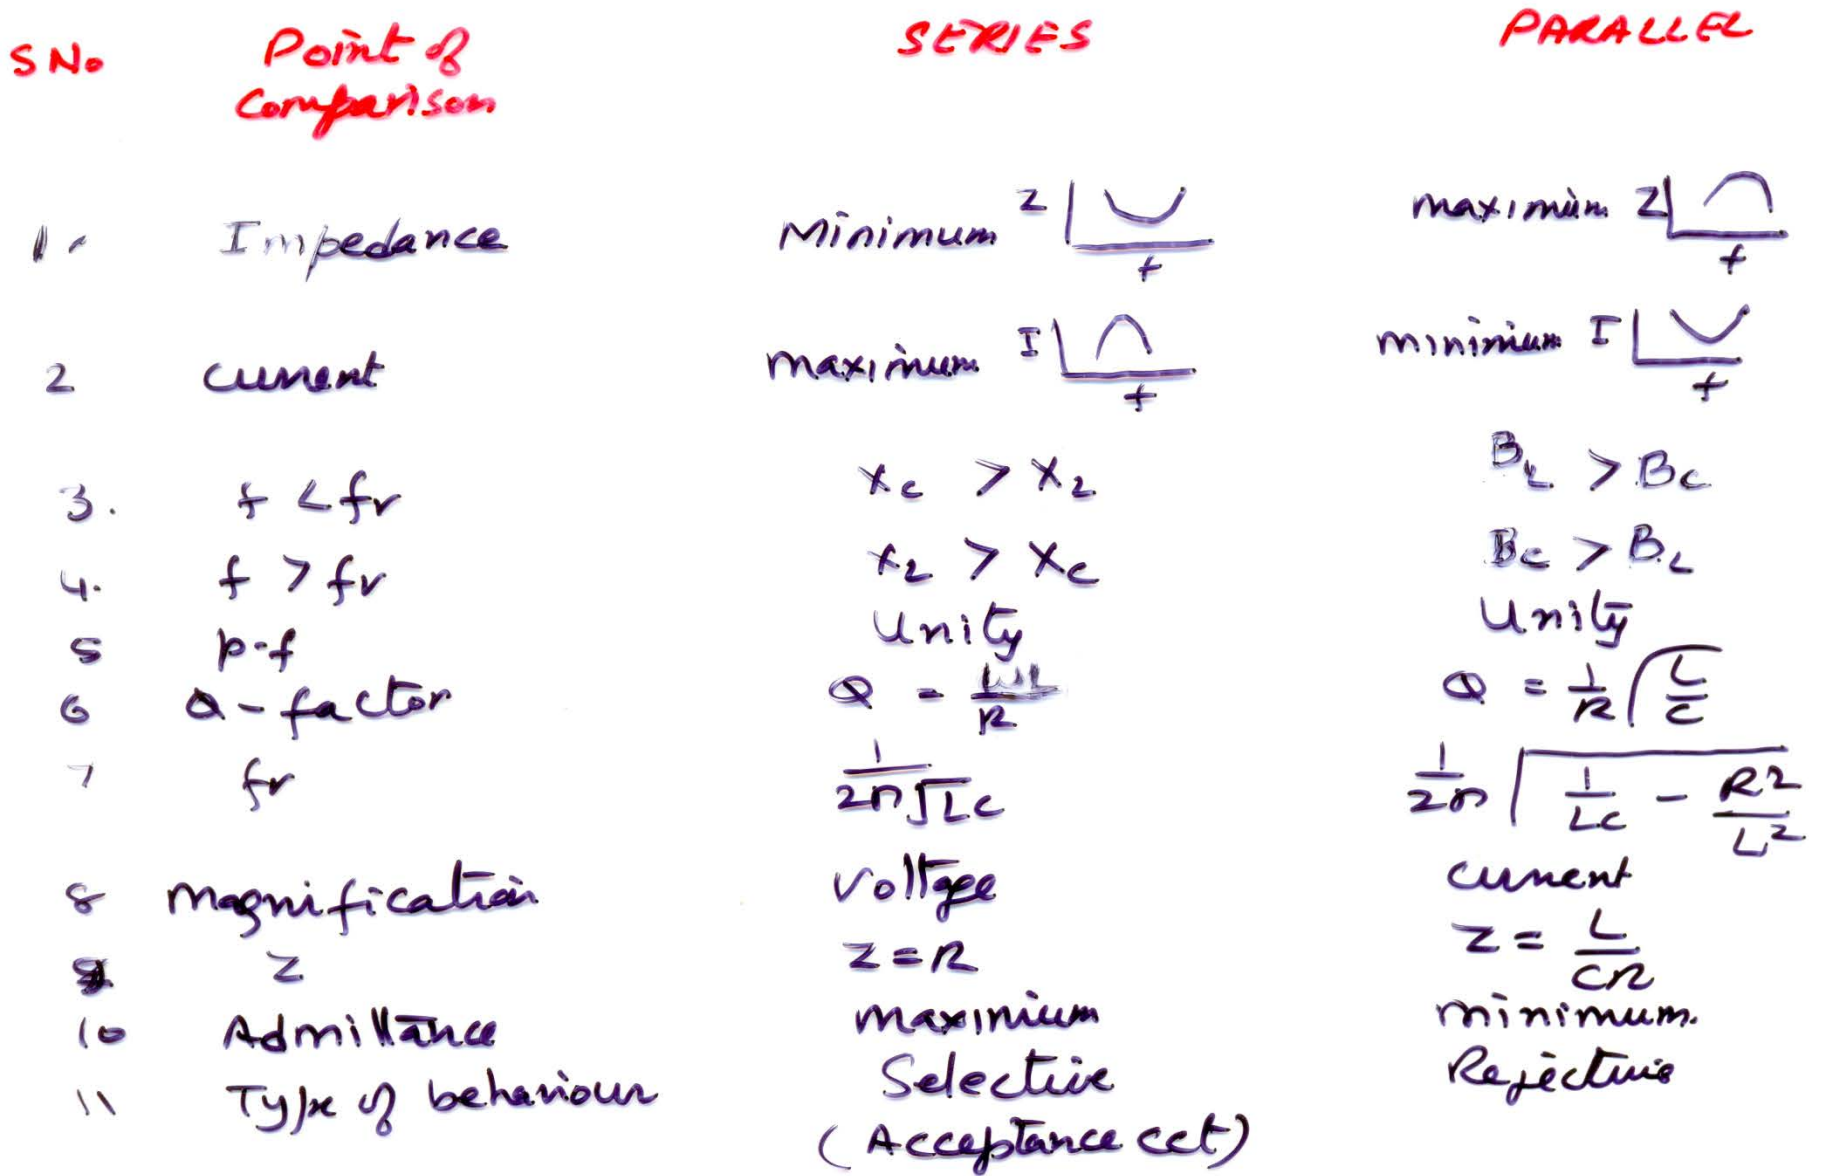 S No. Point of Comparison SERIES PARALLEL
1. Impedance Minimum Z f maximum Z f
2 current maximum I f minimum I f
3. f < fr Xc > XL BL > Bc
4. f > fr XL > Xc Bc > BL
5 p.f Unity Unity
6 Q-factor Q = ωL/R Q = 1/R √(L/C)
7 fr 1/2π√LC 1/2π √(1/LC - R²/L²)
8 Magnification Voltage current
9 Z Z = R Z = L/CR
10 Admittance maximum minimum.
11 Type of behaviour Selective Rejective
(Acceptance cct)